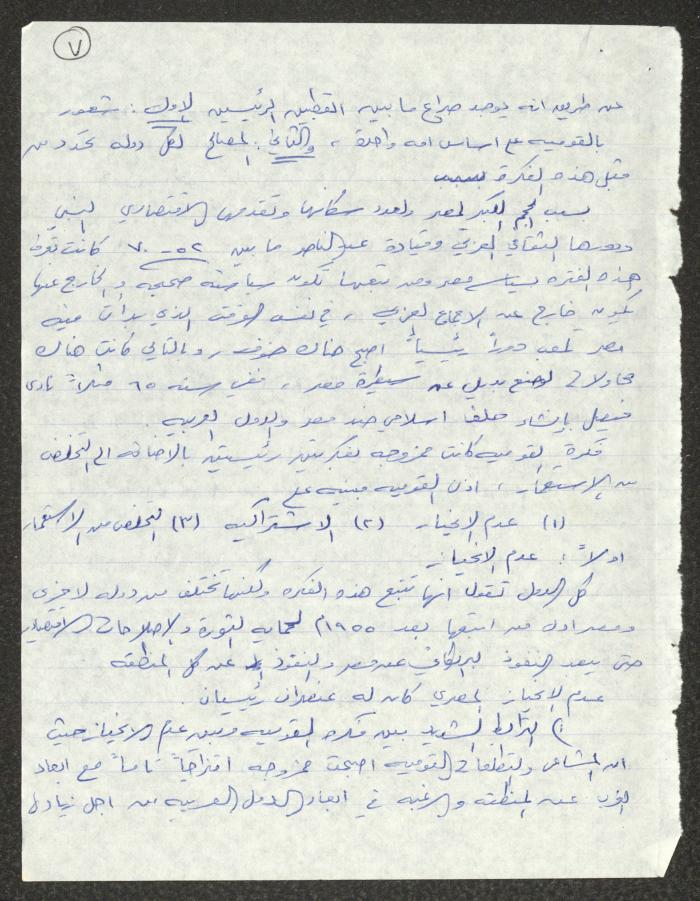 ٧
عن طريق انه يوجد صراع ما بين القطبين الرئيسين الاول : شعور
بالقوميه على اساس امه واحدة ، والثاني : المصالح لكل دوله تحدد من
مثل هذه الفكرة
بسبب الحجم الكبير لمصر ولعدد سكانها وتقدمها الاقتصادي النسبي
ودورها الثقافي العربي وقيادة عبد الناصر ما بين ٥٢ - ٧٠ كانت تعرف
هذه الفتره بسياسة مصر ومن يتبعها تكون سياسته صحيحه والخارج عنها
يكون خارج عن الاجماع العربي ، في نفس الوقت الذي بدأت فيه
مصر تلعب دوراً رئيسياً اصبح هناك خوف ، وبالتالي كانت هناك
محاولات لصنع بديل عن سيطرة مصر ، ففي سنه ٦٥ مثلاً نادى
فيصل بإنشاء حلف اسلامي ضد مصر والدول العربيه
فكرة القوميه كانت ممزوجه بفكرتين رئيسيتين بالاضافه الى التخلص
من الاستعمار ، اذن القوميه مبنيه على
(١) عدم الانحياز (٢) الاشتراكيه (٣) التخلص من الاستعمار
اولاً : عدم الانحياز
كل الدول تقول انها تتبع هذه الفكره ولكنها تختلف من دوله لاخرى
ومصر اول من اتبعها بعد ١٩٥٥م لحمايه الثورة والاصلاحات الاقتصاديه
حتى يبعد النفوذ البريطاني عن مصر والنفوذ عن كل المنطقه
عدم الانحياز المصري كان له عنصران رئيسيان .
١) الترابط الشديد بين فكره القوميه وبين عدم الانحياز حيث
ان المشاعر والتطلعات القوميه اصبحت ممزوجه امتزاجاً تاماً مع ابعاد
الغرب عن المنطقه والرغبه في ابعاد الدول العربيه من اجل زيادة